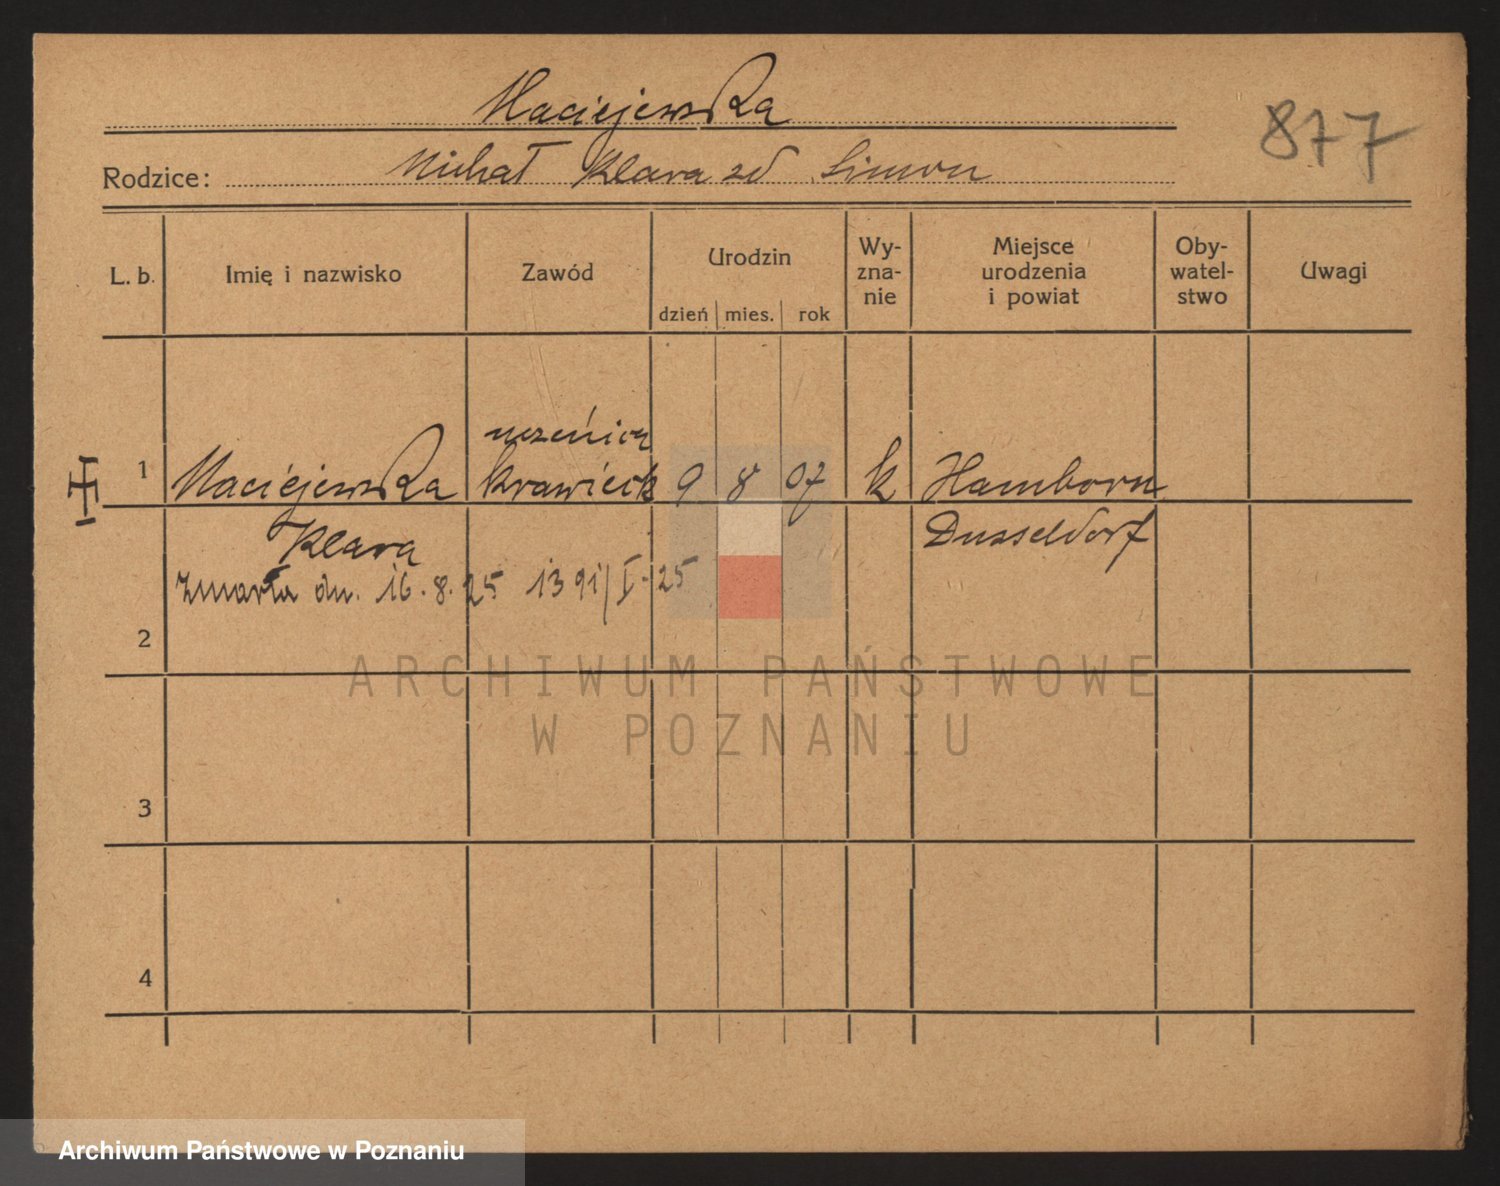 Maciejewska
877
Rodzice: Michał Klara zd Simon
L. b. Imię i nazwisko Zawód Urodzin Wy-zna-nie Miejsce urodzenia i powiat Oby-watel-stwo Uwagi
dzień mies. rok
uczenica
1 Maciejewska krawieck 9 8 07 k Hamborn
Klara Dusseldorf
Zmarła dn. 16.8.25 1391/I-25
2
ARCHIWUM PAŃSTWOWE
W POZNANIU
3
4
Archiwum Państwowe w Poznaniu